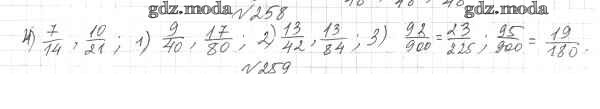 gdz.moda №258 gdz.moda
4) 7/14, 10/21; 1) 9/40, 17/80; 2) 13/42, 13/84; 3) 92/900 = 23/225; 95/900 = 19/180.
№259